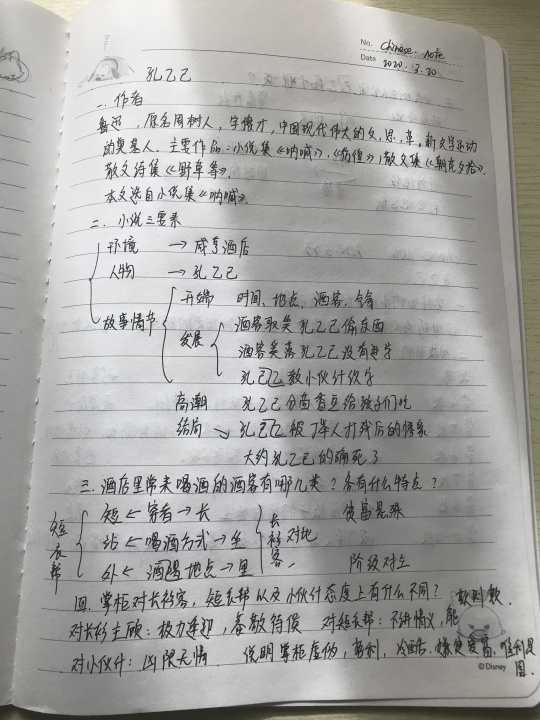 No. Chinese note
Date 2020.3.20
孔乙己
一. 作者
鲁迅，原名周树人，字豫才，中国现代伟大的文、思、革，新文学运动
的奠基人. 主要作品：小说集《呐喊》、《彷徨》，散文集《朝花夕拾》.
散文诗集《野草等》.
本文选自小说集《呐喊》.
二. 小说三要素
环境 → 咸亨酒店
人物 → 孔乙己
故事情节 开端 时间、地点、酒客、
发展 酒客取笑孔乙己偷东西
酒客笑落孔乙己没有进学
孔乙己教小伙计识字
高潮 孔乙己分茴香豆给孩子们吃
结局 孔乙己被丁举人打残后的
大约孔乙己的确死了
三. 酒店里常来喝酒的酒客有哪几类？各有什么特点？
短衣帮 短 ← 穿着 → 长 长衫客 贫富悬殊
站 ← 喝酒方式 → 坐 对比
外 ← 酒喝地点 → 里 阶级对立
四. 掌柜对长衫客，短衣帮以及小伙计态度上有什么不同？
对长衫主顾：极力奉迎，恭敬待候 对短衣帮：不讲情义，能 欺则欺.
对小伙计：凶限无情. 说明掌柜虚伪，势利，冷酷. 嫌贫爱富、唯利是
图.
©Disney